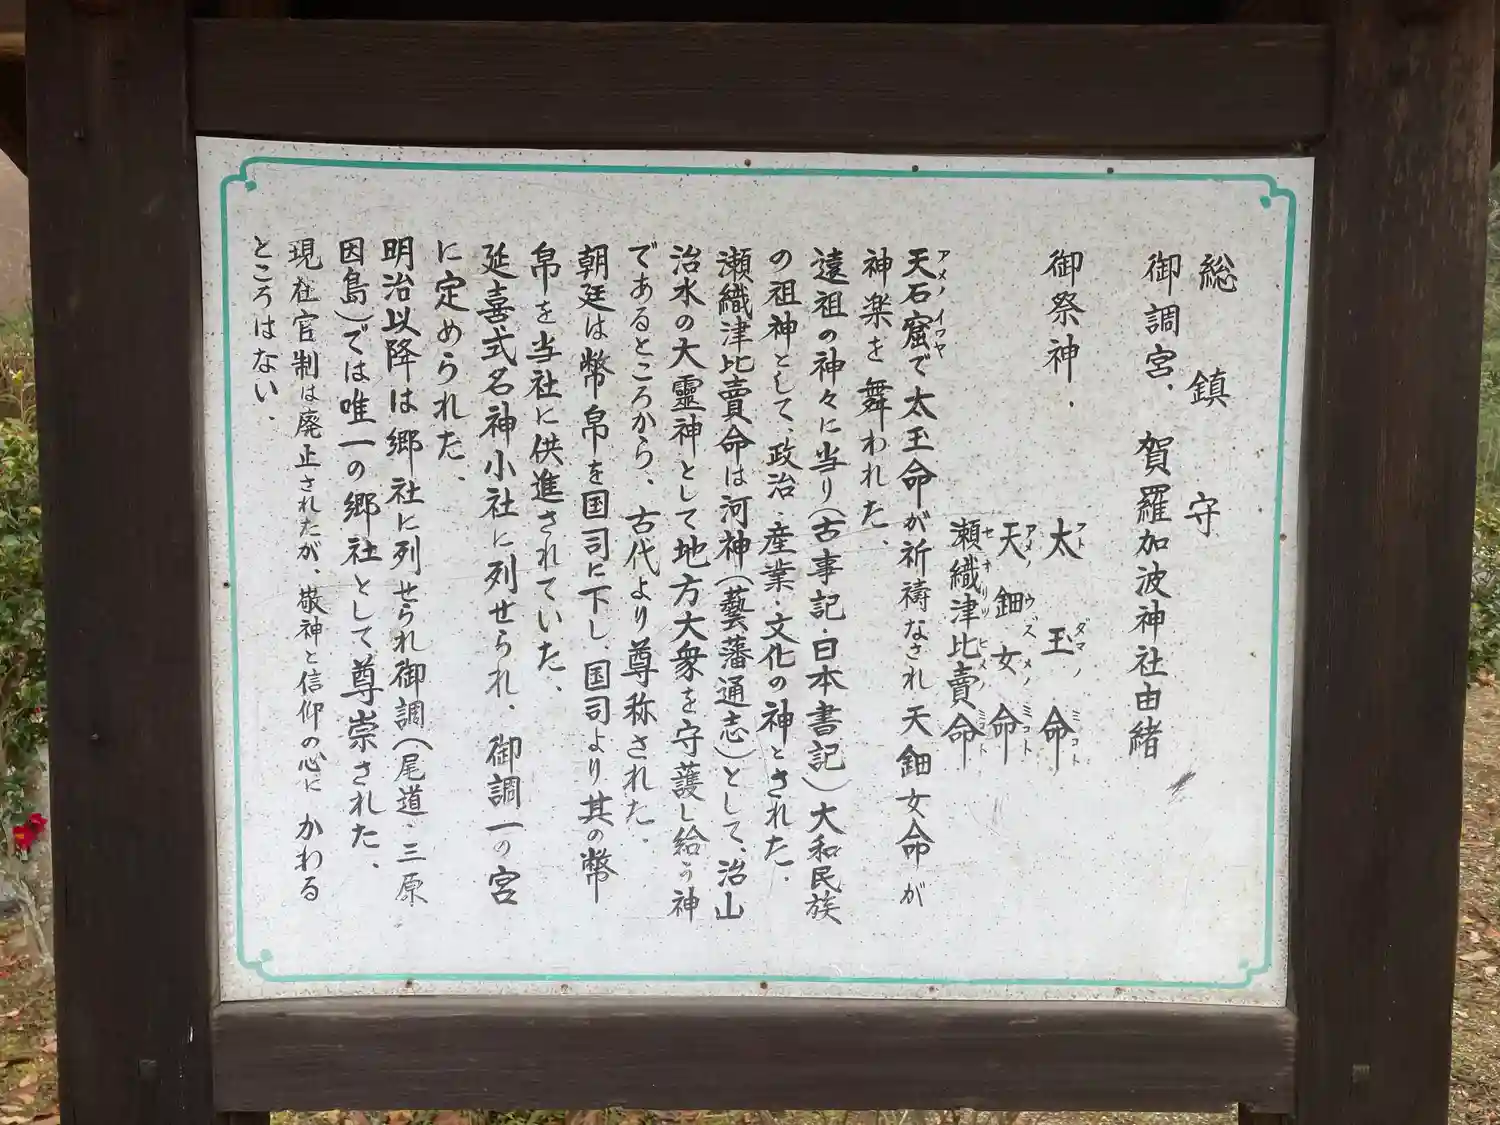 総鎮守
御調宮、賀羅加波神社由緒
御祭神、
太玉命
フト ダマノ ミコト
天鈿女命
アメノ ウズメノ ミコト
瀬織津比賣命
セオリツヒメノ ミコト
天石窟で太玉命が祈禱なされ天鈿女命が
アメノイワヤ
神楽を舞われた、
遠祖の神々に当り(古事記・日本書記)大和民族
の祖神として、政治・産業・文化の神とされた、
瀬織津比賣命は河神(藝藩通志)として、治山
治水の大靈神として地方大衆を守護し給う神
であるところから、古代より尊称された、
朝廷は幣帛を国司に下し、国司より其の幣
帛を当社に供進されていた、
延喜式名神小社に列せられ、御調一の宮
に定められた、
明治以降は郷社に列せられ御調(尾道・三原
因島)では唯一の郷社として尊崇された、
現在官制は廃止されたが、敬神と信仰の心に かわる
ところはない、